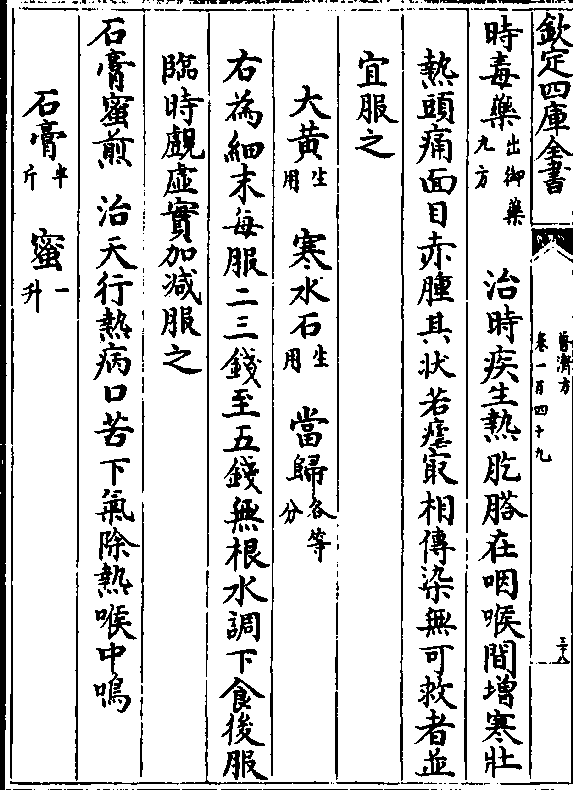 欽定四庫全書
普濟方
卷一百四十九
三十八
時毒藥出御藥九方 治時疾生熱肐𦞂在咽喉間增寒壯
熱頭痛面目赤腫其狀若瘧㝡相傳染無可救者並
宜服之
大黄生用 寒水石生用 當歸各等分
右為細末每服二三錢至五錢無根水調下食後服
臨時覷虚實加減服之
石膏蜜煎 治天行熱病口苦下氣除熱喉中鳴
石膏半斤 蜜一升